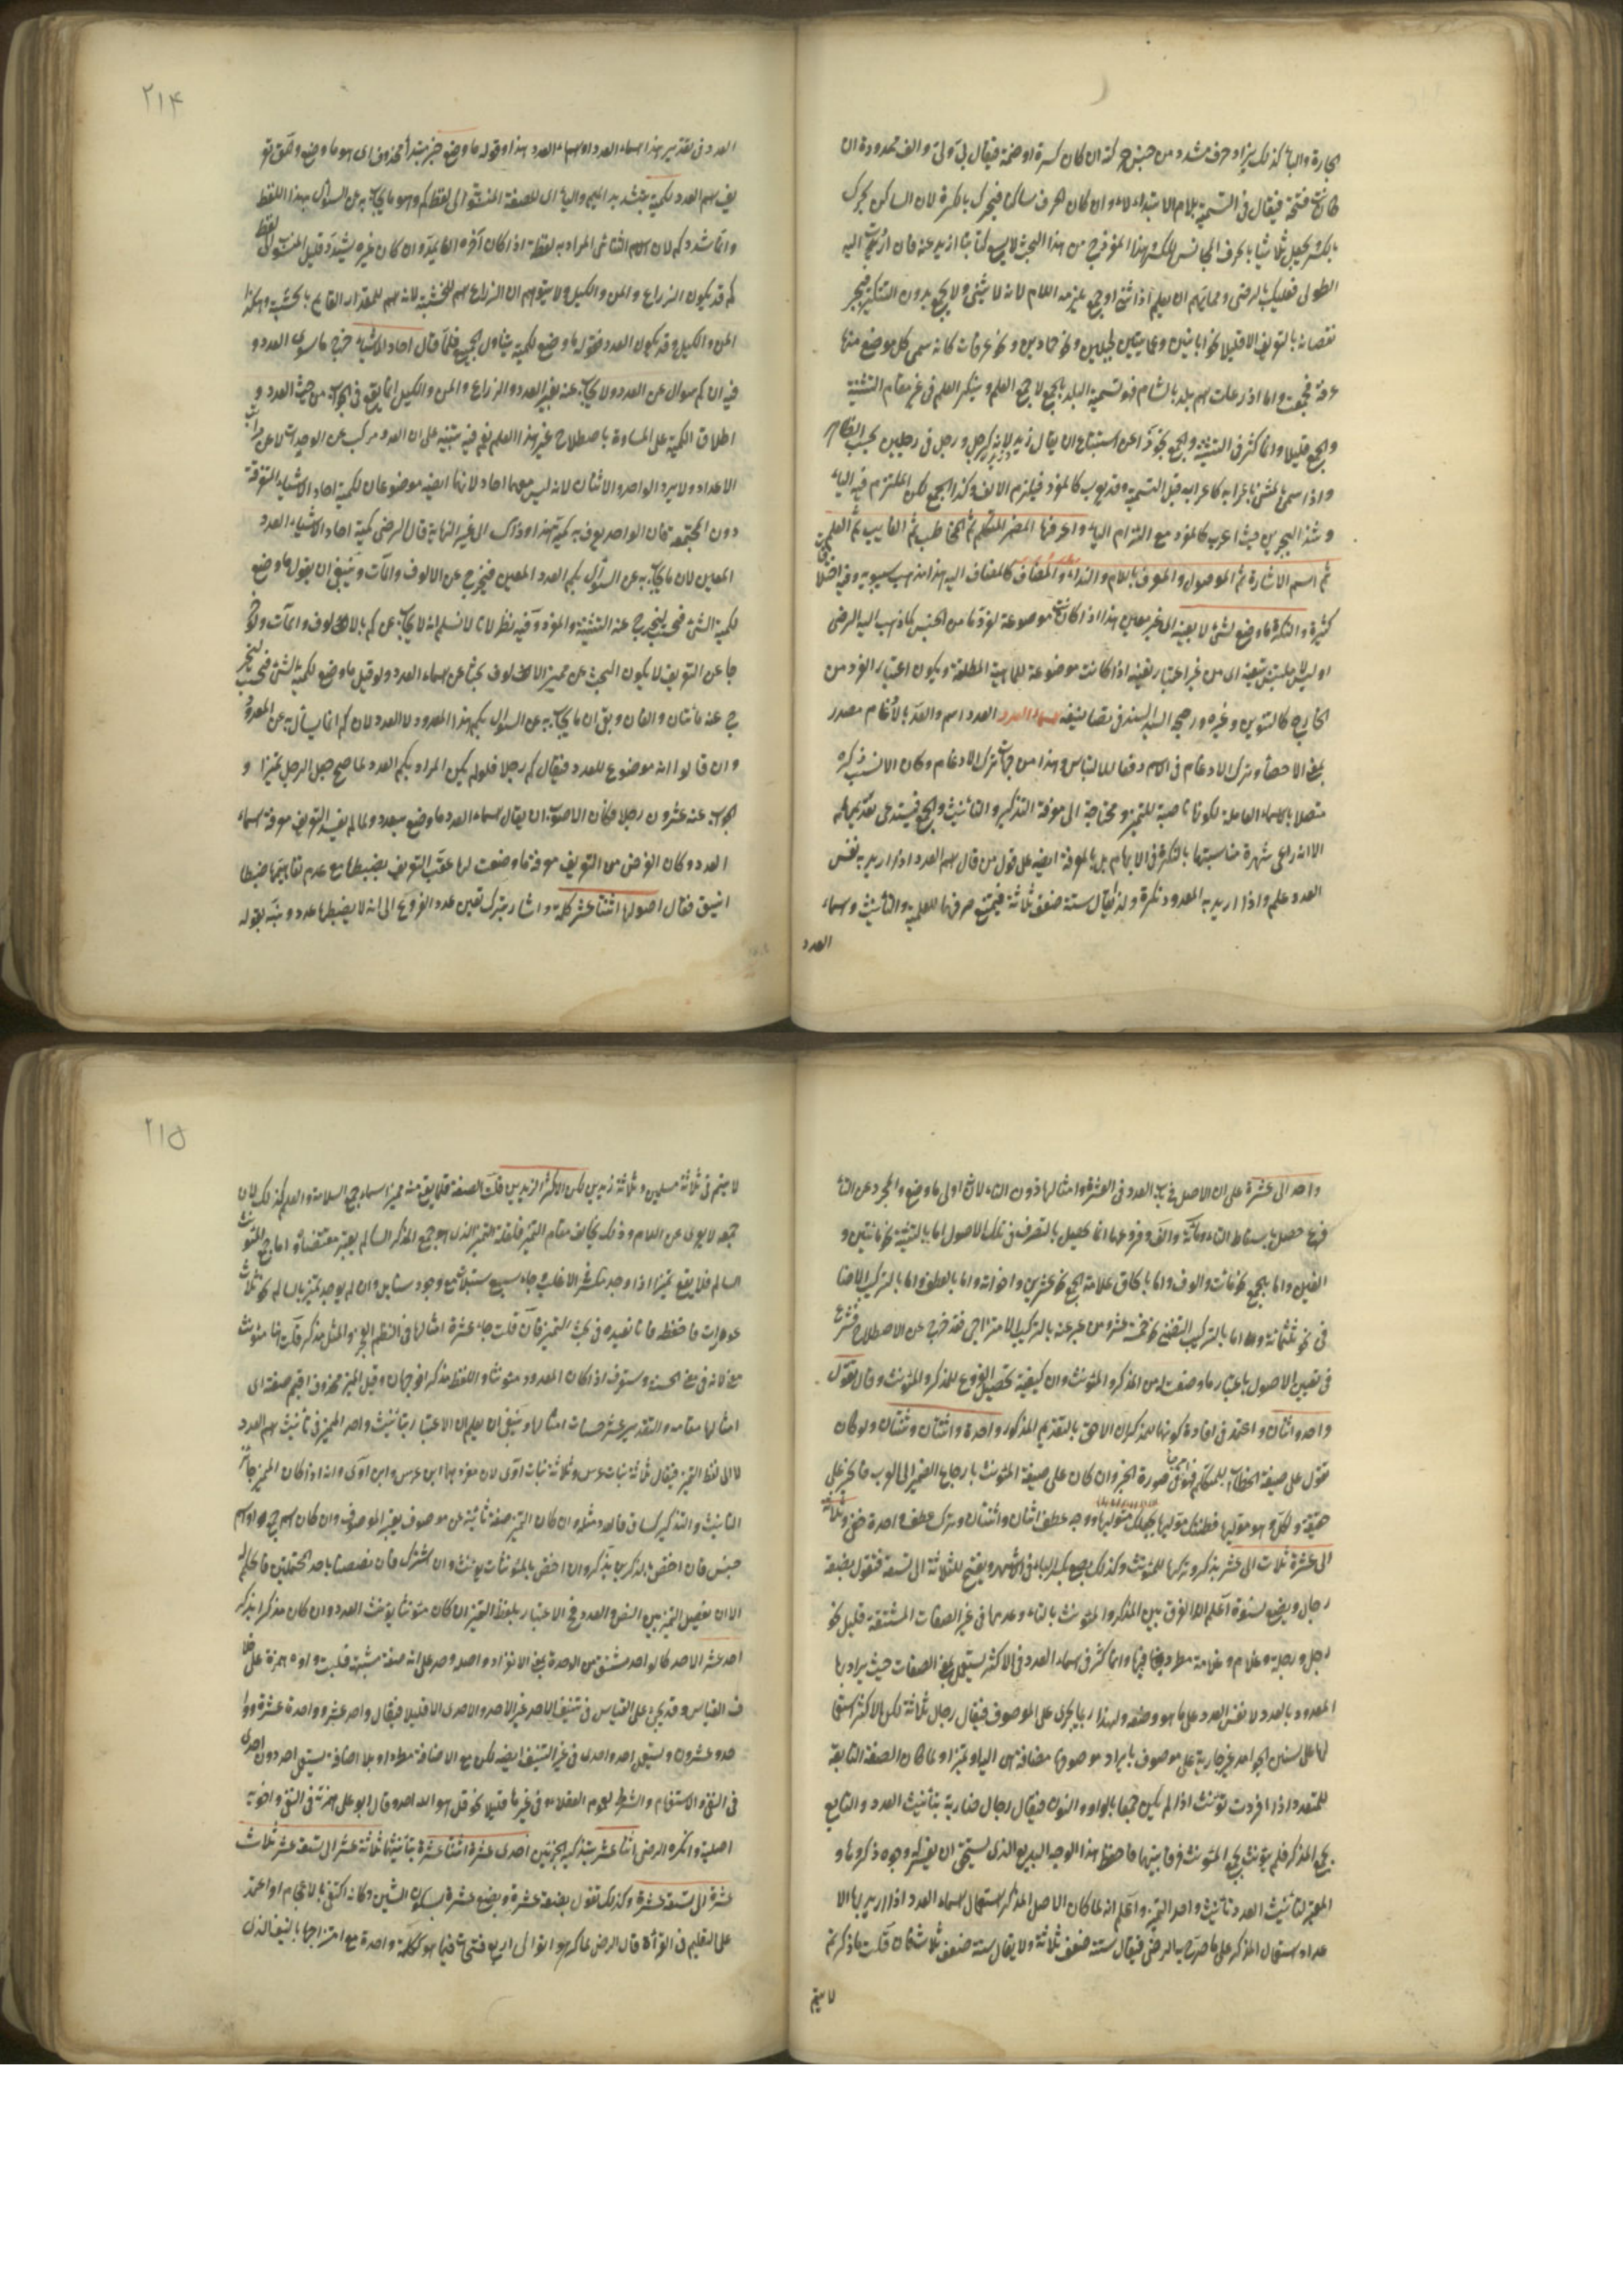 الجارة والياء كذلك يزاد حرف مشدد من جنس حركته ان كان كسرة او ضمة فيقال في ولي والف ممدودة ان
كانت فتحة فيقال في التسمية بلام الابتداء لاء وان كان هو حرف ساكنا فيحرك بالكسرة لان الساكن يحرك
بالكسر ويجعل ثلاثيا بالحرف المجانس للكسر
الطولى فعليك بالرضى ومما يهم ان يعلم اذا ثنى او جمع يلزمه اللام لانه لا يثنى ولا يجمع بدون التنكير فيجبر
نقصانه بالتعريف الا قليلا نحو ابانين وعمايتين لجبلين ونحو جمادين ونحو عرفات كانه سمى كل موضع منها
عرفة فجمعت واما اذرعات اسم بلد بالشام فهو تسمية البلد بالجمع لا جمع العلم وينكر العلم في غير مقام التثنية
والجمع قليلا وانما كثر في التثنية والجمع تحرزا عن استبشاع ان يقال زيد وزيد كرجل ورجل في رجلين بحسب الظاهر
واذا سمى بالمثنى فاعرابه كاعرابه قبل التسمية وقد يعرب كالمفرد فيلزم الالف وكذا الجمع لكن الملتزم فيه الياء
وشذ البحرين حيث اعرب كالمفرد مع التزام الياء واعرفها المضمر المتكلم ثم المخاطب ثم الغايب ثم العلم
ثم اسم الاشارة ثم الموصول والمعرف باللام والنداء والمضاف كالمضاف اليه هذا مذهب سيبويه وفيه اختلافات
كثيرة والنكرة ما وضع لشيء لا بعينه اى غير معين هذا اذا كانت موضوعة لفرد ما من الجنس كما ذهب اليه الرضى
او ليس ملتبس بتعينه اى من غير اعتبار تعينه اذا كانت موضوعة للماهية المطلقة ويكون اعتبار الفرد من
الخارج كالتنوين وغيره ورجحه السيد السند في تصانيفه اسماء العدد العدد اسم والعد بالادغام مصدر
بمعنى الاحصاء وترك الادغام في الاسم دفعا للالتباس وهذا من جهات ترك الادغام وكان الانسب ذكره
متصلا بالاسماء العاملة لكونها ناصبة للتمييز ومحتاجة الى معرفة التذكير والتانيث والجمع فيستدعى تقديمها له
الا انه راعى شهرة مناسبتها بالنكرة في الابهام بل بالمعرفة ايضا على قول من قال اسم العدد اذا اريد به نفس
العدد علم واذا اريد به المعدود نكرة ولذا يقال ستة ضعف ثلاثة فيمنع صرفها للعلمية والتأنيث واسماء
العدد
٢١۴
العدد في تقدير هذا اسماء العدد او اسماء العدد هذا وقوله ما وضع خبر مبتدأ محذوف اى هو ما وضع وحق تعر
يف اسم العدد لكمية بتشديد الميم والياء اى للصفة المنسوبة الى لفظ كم وهو ما يجاب به عن السؤال بهذا اللفظ
وانما شدد كم لان الاسم الثنائى المراد به لفظه اذا كان آخره
كم قد يكون الذراع والمن والكيل ولا يتوهم ان الذراع اسم للخشبة لانه اسم للمقدار القايم بالخشبة وهكذا
المن والكيل وقد يكون العدد فقوله ما وضع لكمية يتناول الجميع فلما قال احاد الاشياء خرج ما سوى العدد و
فيه ان كم سوال عن العدد ولا يجاب عنه بغير العدد والذراع والمن والكيل انما يقع في الجواب من حيث العدد و
اطلاق الكمية على المساوة باصطلاح غير هذا العلم نعم فيه تنبيه على ان العدد مركب عن الوحدات لا عن مراتب
الاعداد ولا يرد الواحد والاثنان لانه ليس معهما احاد لانهما ايضا موضوعان لكمية احاد الاشياء المتفرقة
دون المجتمعة فان الواحد يعرف به كمية هذا وذاك الى غير النهاية قال الرضى كمية احاد الاشياء العدد
المعين لان ما يجاب به عن السؤال بكم العدد المعين فيخرج عن الالوف والمآت وينبغى ان يقول ما وضع
لكمية الشيء فحسب ليخرج عنه التثنية والمفرد وفيه نظر لانا لا نسلم انه لا يجاب عن كم بالالوف والمآت ولو خر
جا عن التعريف لا يكون البحث عن مميز الالوف بحثا عن اسماء العدد ولو قيل ما وضع لكمية الشيء فحسب ليخر
ج عنه مأتان والفان وبقى ان ما يجاب به عن السوال بكم هذا المعدود لا العدد لان كم انما يسأل به عن المعدود
وان قالوا انه موضوع للعدد فيقال كم رجلا فلو لم يكن المراد بكم العدد لما صح جعل الرجل تميزا و
الجواب عنه عشرون رجلا فكان الاصوب ان يقال اسماء العدد ما وضع لمعدود ولما لم يفد التعريف معرفة اسماء
العدد وكان الغرض من التعريف معرفة ما وضعت لها عقب التعريف بضبطها مع عدم تناهيها ضبطا
انيق فقال اصولها اثنتا عشرة كلمة واشار بترك تعين عدد الفروع الى انه لا يضبطها عدد ونبه بقوله
واحد الى عشرة على ان الاصل في باب العدد في العشرة وامثالها ذون التاء لانه اولى ما وضع والمجرد عن التاء
فرع حصل باسقاط التاء ومائة والف وفروعها انما تحصل بالتصرف في تلك الاصول اما بالتثنية نحو مأتين و
الفين واما بجمع نحو مائات والوف واما بالحاق علامة الجمع نحو عشرين واخواته واما بالعطف واما بالتركيب الاضا
في نحو ثلثمائة واما بالتركيب التضمنى نحو خمسة عشر ومن عبر عنه بالتركيب الامتزاجى فقد خرج عن الاصطلاح فشرع
في تعيين الاصول باعتبار ما وضعت له من المذكر والمؤنث وان كيفية تحصيل الفروع للمذكر والمؤنث وقال تقول
واحد واثنان واعتمد في افادة كونها للمذكر ان الاحق بالتقديم المذكور واحدة واثنتان وثنتان ولو كان
تقول على صيغة الخطاب
حقيقة
الى عشرة ثلاث الى عشر بذكر وتركها للمؤنث وكذلك بضع بكسر الباء في الاشهر ويفتح للثلاثة الى تسعة فتقول بضعة
رجال وبضع نسوة اعلم ان الفرق بين المذكر والمؤنث بالتاء وعدمها في غير الصفات المشتقة قليل نحو
رجل ورجلة وغلام وغلامة مطرد فيها وانما كثر في اسماء العدد في الاكثر تستعمل بمعنى الصفات حيث يراد بها
المعدود بالعدد لا نفس العدد على ما هو وضعه ولهذا ربما يجرى على الموصوف فيقال رجال ثلاثة لكن الاكثر استعما
لها على سنن الجوامد غير جارية على موصوف بايراد موصوفها مضافة هى اليه او تميزا ولما كان الصفة التابعة
للمتعدد اذا افردت تؤنث اذا لم يكن جمعا بالواو والنون فيقال رجال ضاربة بتأنيث العدد والتابع
بجمع المذكر فلم يؤنث بجمع المؤنث فرقا بينهما فاحفظ هذا الوجه البديع الذى يستحق ان يغير له وجوه ذكروها و
المعتبر لتأنيث العدد تأنيث واحد التميز واعلم انه لما كان الاصل المذكر استعمال اسماء العدد اذا اريد بها الا
عداد استعمال المذكر على ما صرح به الرضى فيقال ستة ضعف ثلاثة ولا يقال ستة ضعف ثلاث فان قلت ما ذكرتم
لا يتم
٢١۵
لا يتم في ثلاثة مسلمين وثلاثة زيدين لكن الاكثر الزيدين قلت الصفة قلما يقع منه مميز اسماء جمع السلامة والعلم كذلك لان
جمعه لا يعرى عن اللام وذلك يخالف مقام التميز فلقلة التميز الذى هو جمع المذكر السالم يعتبر مقتضاه واما جمع المؤنث
السالم فلا يقع تميزا اذا وجد مكسر الا غلب جاء سبع سنبلات مع وجود سنابل وان لم يوجد تميز بالسالم نحو ثلاث
عورات فاحفظه فانا نفيده في بحث التميز فان قلت جاء عشرة امثالها في النظم المعجز والمثل مذكر قلت انها مؤنث
معنى لانه في معنى الحسنة وستعرف اذا كان المعدود مؤنثا واللفظ مذكر او جهان وقيل المميز محذوف اقيم صفته اى
امثالها مقامه والتقدير عشر حسنات امثالها وينبغى ان يعلم ان الاعتبار بتأنيث واحد المميز في تأنيث اسم العدد
لا الى لفظ التميز فيقال ثلاثة بنات عرس وثلاثة بنات آوى لان مفردهما ابن عرس وابن آوى وانه اذا كان المميز جائز
التأنيث والتذكير كساق فالعدد مثله وان كان التميز صفة نائبة عن موصوف يعتبر الموصوف وان كان اسم جمع او اسم
جنس فان اختص بالمذكرين يذكر وان اختص بالمؤنثات يؤنث وان اشترك فان نص عنها باحد المحتملين فالحكم له
الا ان يفصل التميز بين النص والعدد فح الاعتبار بلفظ التميز ان كان مؤنثا يؤنث العدد وان كان مذكرا يذكر
احد عشر الاحد كالواحد مشتق من الوحدة بمعنى الانفراد واحد وحد على انه صفة مشبهة قلبت واوه همزة على خلا
ف القياس وقد يجئ على القياس في تنييف الاحد غير الاحد والاحدى الا قليلا فيقال واحد عشر وواحدة عشرة ووا
حد وعشرون ويستعمل احد واحدى في غير التنييف ايضا لكن مع الاضافة مطردا وبلا اضافة يستعمل احد دون احدى
في النفى والاستفهام والشرط لعموم العقلاء وفي غيرها قليلا نحو قل هو الله احد وقال ابو على همزته في النفى واخوته
اصلية وانكره الرضى اثنا عشر بتذكير الجزئين احدى عشرة اثنتا عشرة بتأنيثهما ثلاثة عشر الى تسعة عشر ثلاث
عشرة الى تسع عشرة وكذلك تقول بضعة عشر وبضع عشرة بسكون الشين وكانه اكتفى بالاعجام او اعتمد
على التعليم في القرأة قال الرضى لما كرهوا توالى اربع فتحات فيما هو كلمة واحدة مع امتزاجها بالنيف الذى